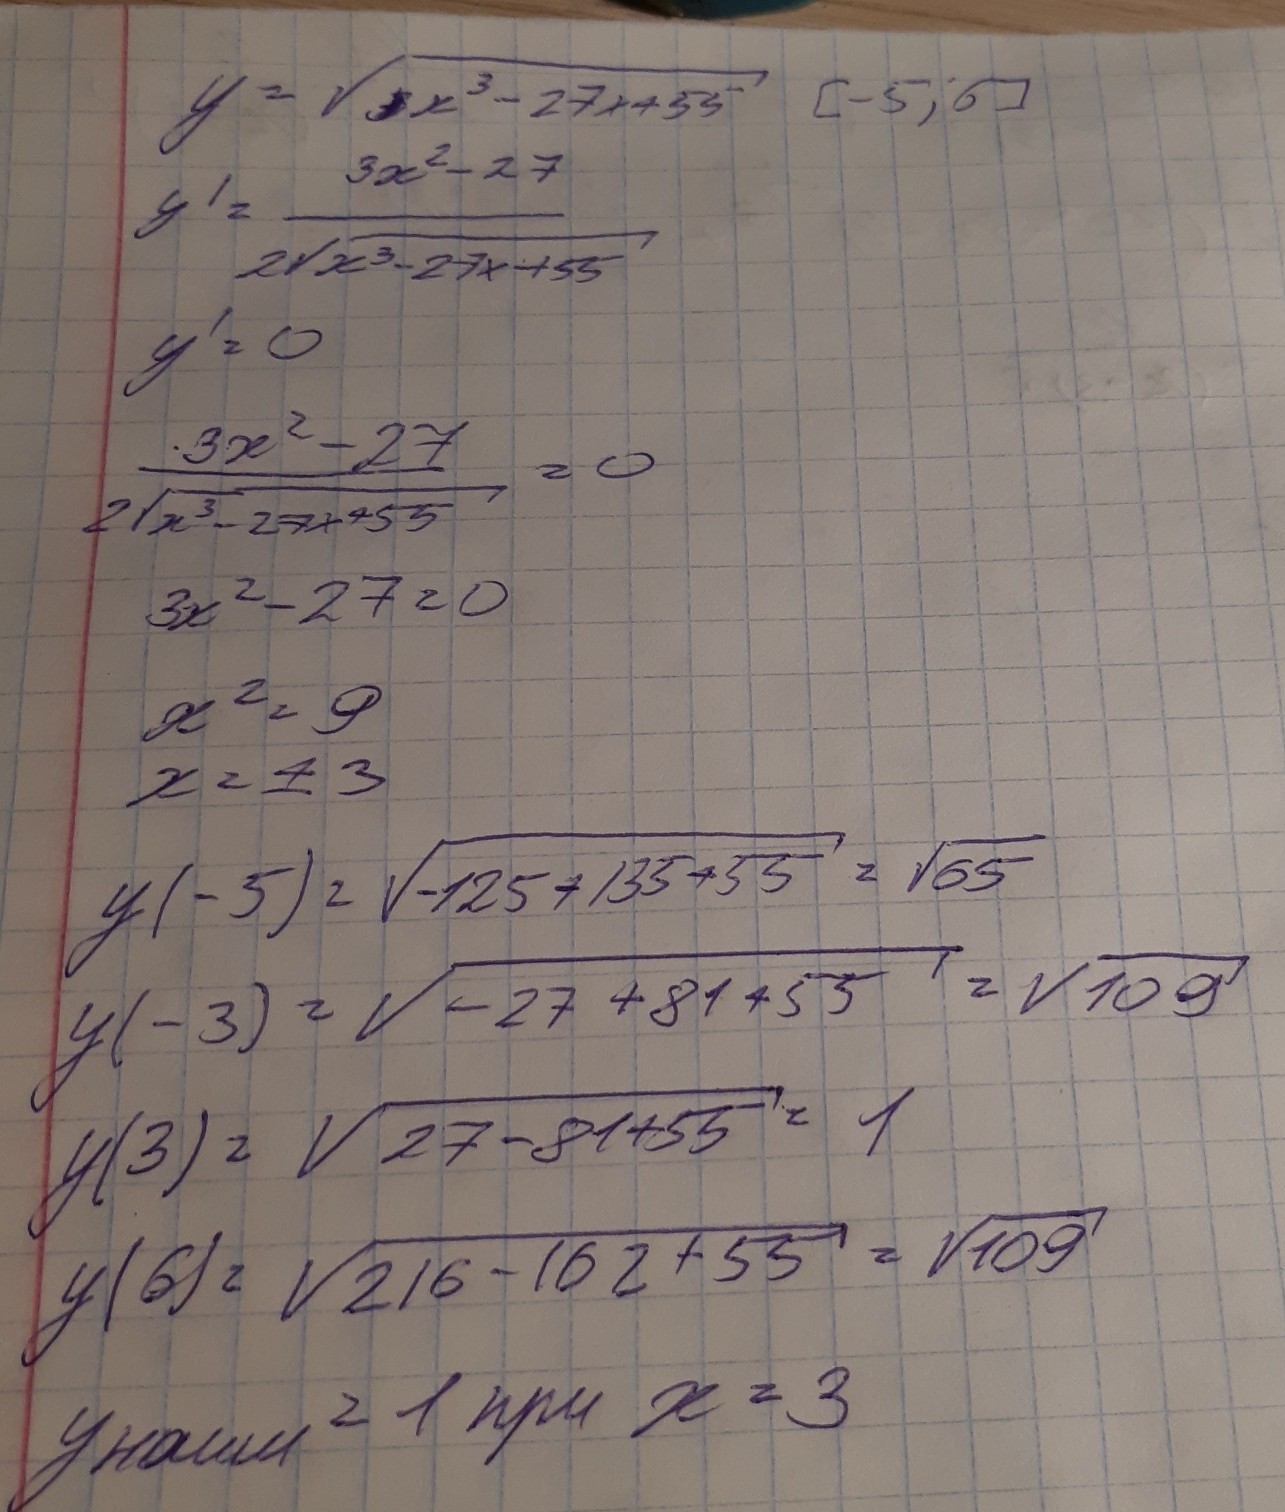 y = √(x³ - 27x + 55) [-5; 6]
y' = (3x² - 27) / (2√(x³ - 27x + 55))
y' = 0
(3x² - 27) / (2√(x³ - 27x + 55)) = 0
3x² - 27 = 0
x² = 9
x = ±3
y(-5) = √(-125 + 135 + 55) = √65
y(-3) = √(-27 + 81 + 55) = √109
y(3) = √(27 - 81 + 55) = 1
y(6) = √(216 - 162 + 55) = √109
y наим = 1 при x = 3